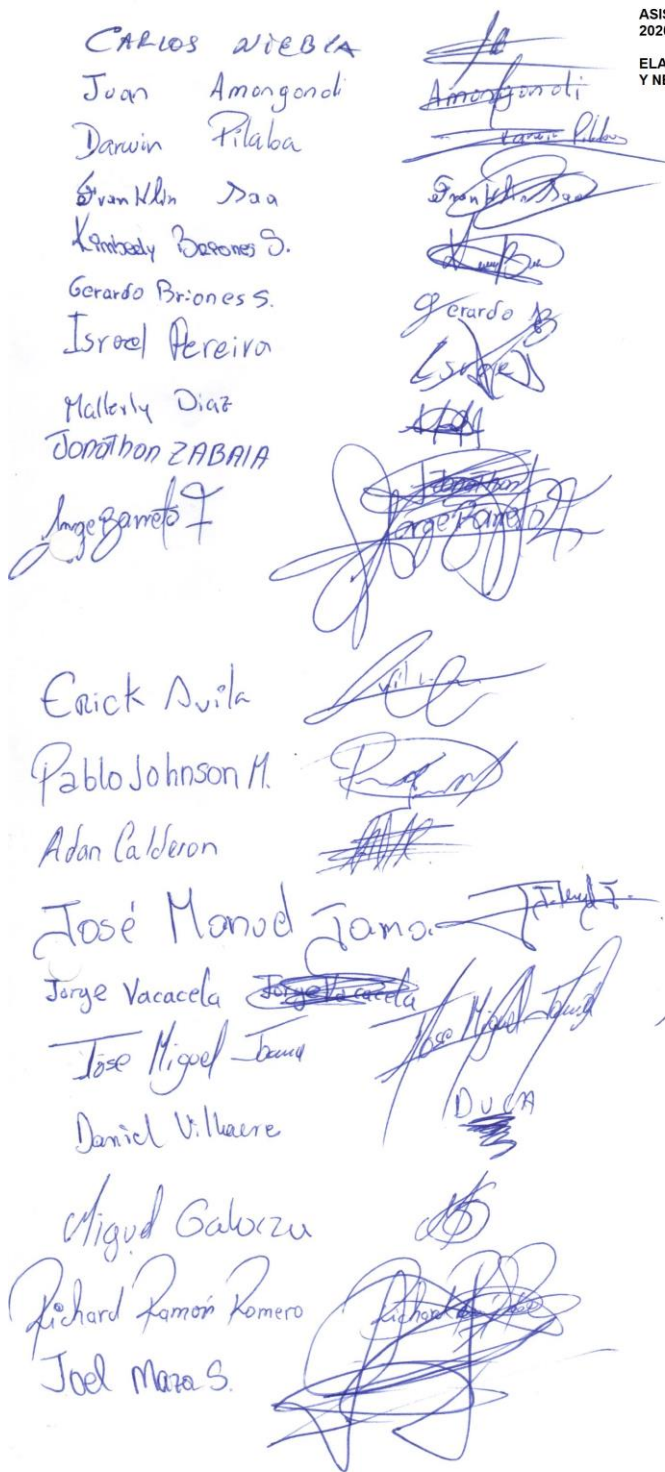 ASIS
2020
ELA
Y NE
CARLOS NIEBLA
Juan Amangandi Amangandi
Darwin Pilaba
Franklin Saa Franklin Saa
Kimbedy S.
Gerardo Briones S. Gerardo B
Israel Pereira Israel
Mallerly Diaz
Jonathon ZABALA Jonathon
Jorge Barreto F Jorge Barreto F
Erick Avila
Pablo Johnson M.
Adan Calderon
José Manuel Jama.
Jorge Vacacela Jorge Vacacela
Jose Miguel Jama Jose Miguel Jama
Daniel
Miguel
Richard Ramón Romero Richard
Joel Maza S.